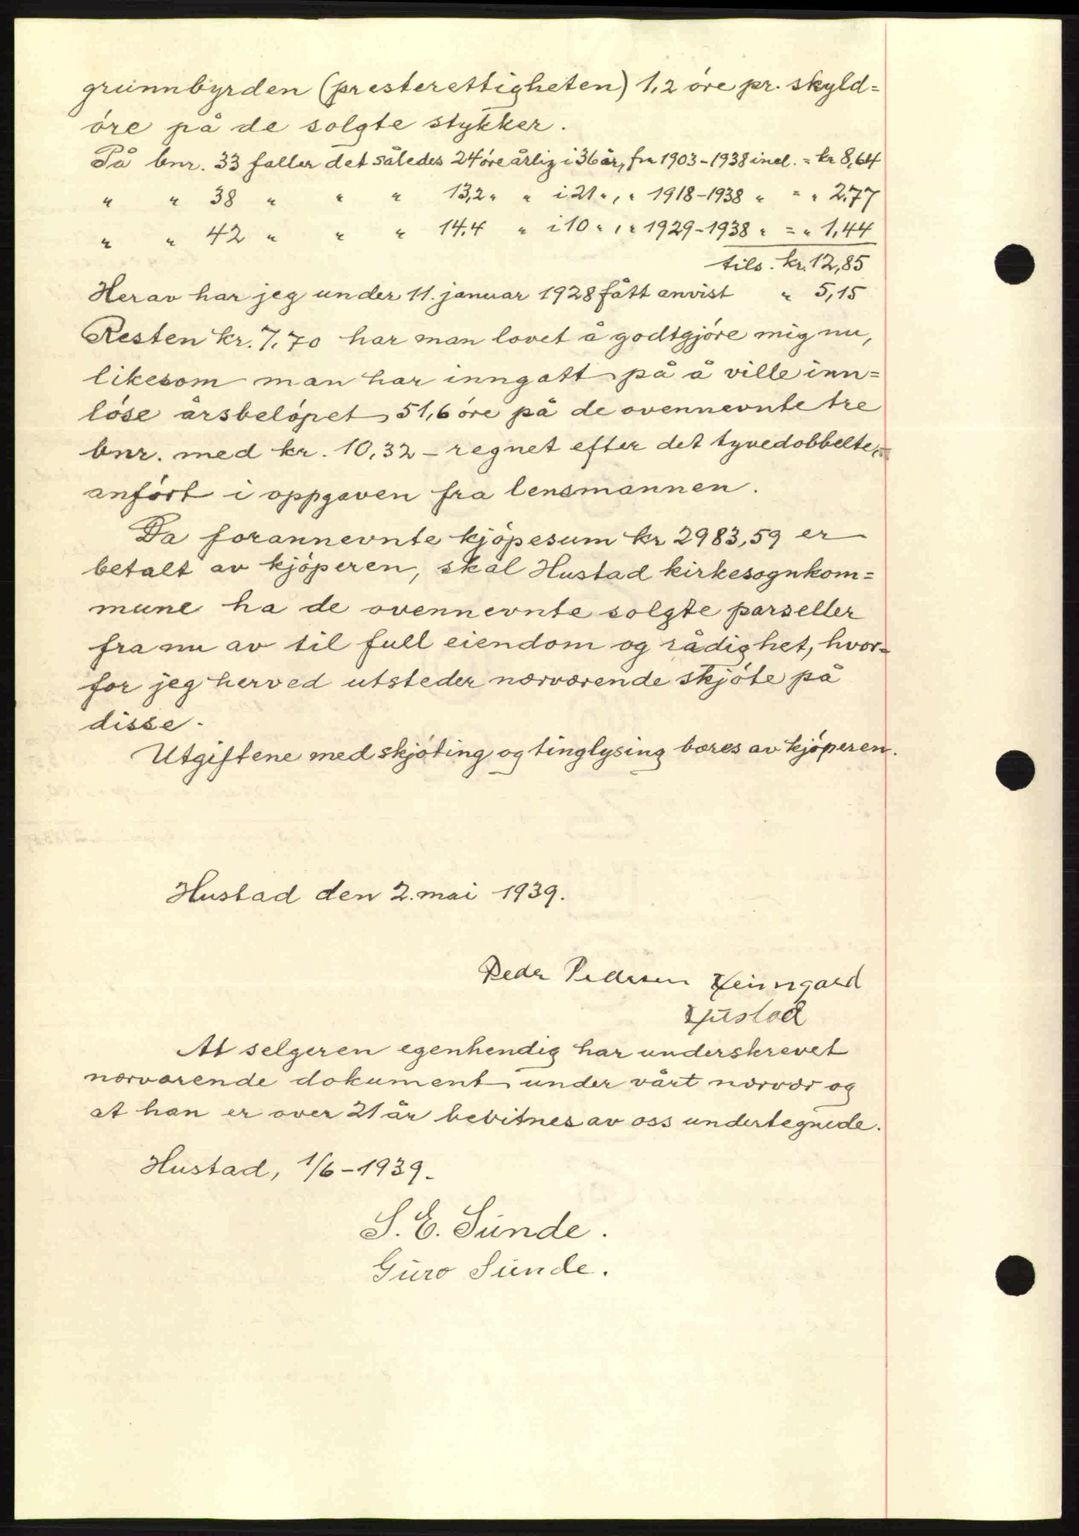 grunnbyrden (presterettigheten) 1,2 öre pr. skyld=
öre på de solgte stykker.
På bnr. 33 faller det således 24 öre årlig i 36 år, fra 1903-1938 incl. = kr 8,64
" " 38 " " " 13,2 " " i 21 " , " 1918-1938 " = " 2.77
" " 42 " " " 14.4 " i 10 " , " 1929-1938 " = " 1,44
tils. kr. 12,85
Herav har jeg under 11. januar 1928 fått anvist " 5,15
Resten kr. 7,70 har man lovet å godtgjöre mig nu,
likesom man har inngatt på å ville inn=
löse årsbelöpet 51,6 öre på de ovennevnte tre
bnr. med kr. 10,32 - regnet efter det tyvedobbelte,
anfört i oppgaven fra lensmannen.
Da forannevnte kjöpesum kr 2983,59 er
betalt av kjöperen, skal Hustad kirkesognkom=
mune ha de ovennevnte solgte parseller
fra nu av til full eiendom og rådighet, hvor=
for jeg herved utsteder nærværende skjöte på
disse.
Utgiftene med skjöting og tinglysing bæres av kjöperen.
Hustad den 2. mai 1939.
Peder Pedersen Heimgard
Hustad
At selgeren egenhendig har underskrevet
nærværende dokument under vårt nærvær og
at han er over 21 år bevitnes av oss undertegnede.
Hustad, 1/6-1939.
S. E. Sunde.
Guro Sunde.